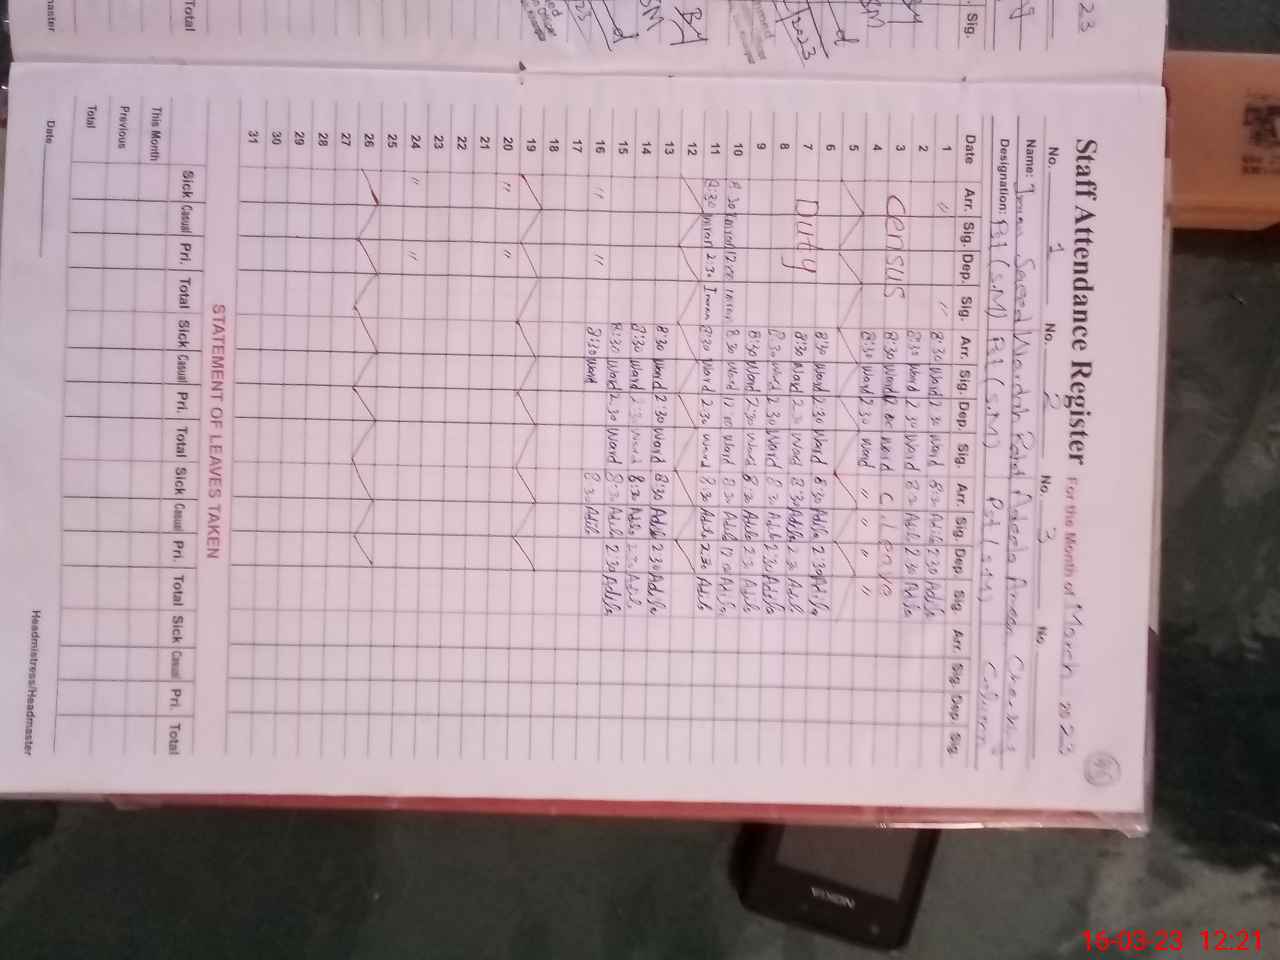 Staff Attendance Register For the Month of March 2023
No. 1 No. 2 No. 3 No.
Name: Imran Saeed Wardah
Designation: Pst (S.M) Pst (S.M) Pst (S.M)
Date Arr. Sig. Dep. Sig. Arr. Sig. Dep. Sig. Arr. Sig. Dep Sig. Arr. Sig. Dep. Sig.
1 " " 8:30 Ward 2:30 Ward 8:30 Adila 2:30 Adila
2 8:30 Ward 2:30 Ward 8:30 Adila 2:30 Adila
3 Census 8:30 Ward 12:00 Ward C. Leave
4 8:30 Ward 2:30 Ward " " " "
5
6 8:30 Ward 2:30 Ward 8:30 Adila 2:30 Adila
7 Duty 8:30 Ward 2:30 Ward 8:30 Adila 2:30 Adila
8 8:30 Ward 2:30 Ward 8:30 Adila 2:30 Adila
9 8:30 Ward 2:30 Ward 8:30 Adila 2:30 Adila
10 8:30 Imran 12:00 Imran 8:30 Ward 12:00 Ward 8:30 Adila 12:00 Adila
11 8:30 Imran 2:30 Imran 8:30 Ward 2:30 Ward 8:30 Adila 2:30 Adila
12
13 8:30 Ward 2:30 Ward 8:30 Adila 2:30 Adila
14 8:30 Ward 2:30 Ward 8:30 Adila 2:30 Adila
15 8:30 Ward 2:30 Ward 8:30 Adila 2:30 Adila
16 " " 8:30 Ward 8:30 Adila
17
18
19
20 " "
21
22
23
24 " "
25
26
27
28
29
30
31
STATEMENT OF LEAVES TAKEN
Sick Casual Pri. Total Sick Casual Pri. Total Sick Casual Pri. Total Sick Casual Pri. Total
This Month
Previous
Total
Date Headmistress/Headmaster
23
Sig.
2023
Total
master
NOKIA
16-03-23 12:21